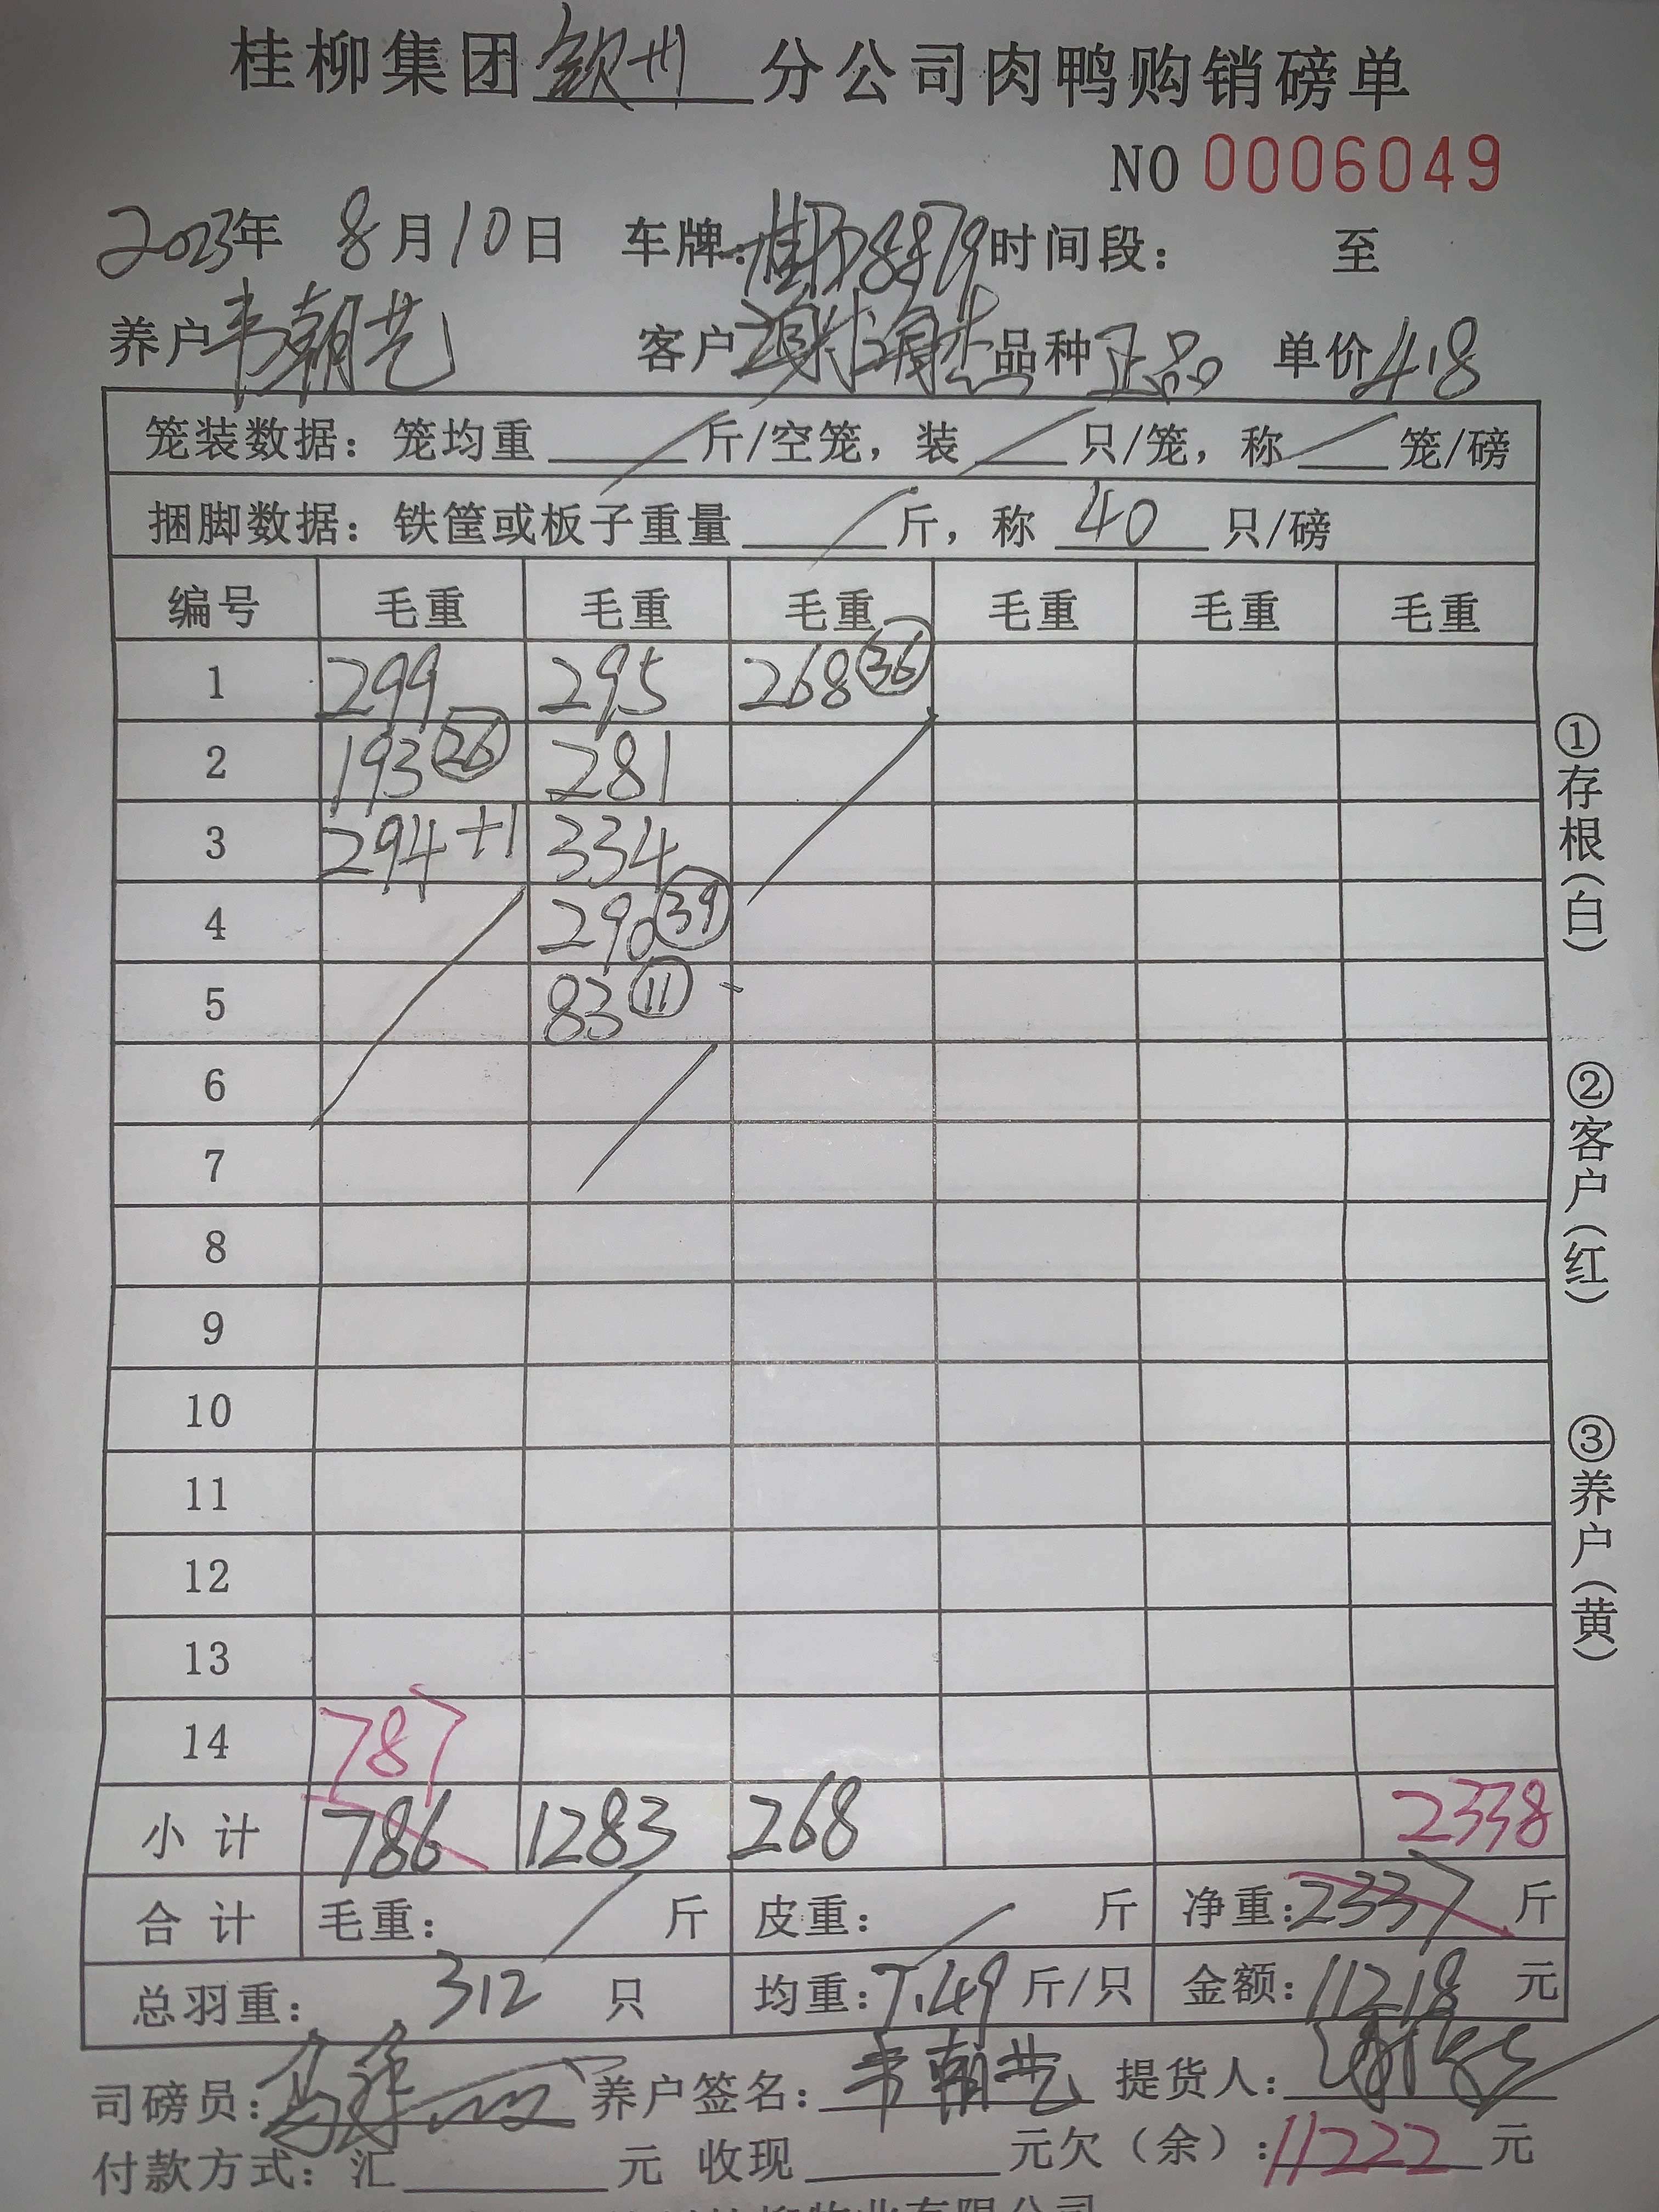 桂柳集团钦州分公司肉鸭购销磅单
NO 0006049
2023年 8月10日 车牌: 8879 时间段: 至
养户 韦朝艺 客户 品种 正品 单价 4.8
笼装数据: 笼均重 斤/空笼, 装 只/笼, 称 笼/磅
捆脚数据: 铁筐或板子重量 斤, 称 40 只/磅
编号 毛重 毛重 毛重 毛重 毛重 毛重
1 299 295 268 36
2 193 26 281
3 294+1 334
4 290 39
5 83 11
6
7
8
9
10
11
12
13
14 787
小计 786 1283 268 2338
合计 毛重: 斤 皮重: 斤 净重: 2337 斤
总羽重: 312 只 均重: 7.49 斤/只 金额: 11218 元
司磅员: 养户签名: 韦朝艺 提货人:
付款方式: 汇 元 收现 元 欠(余): 11222 元
①存根(白)
②客户(红)
③养户(黄)